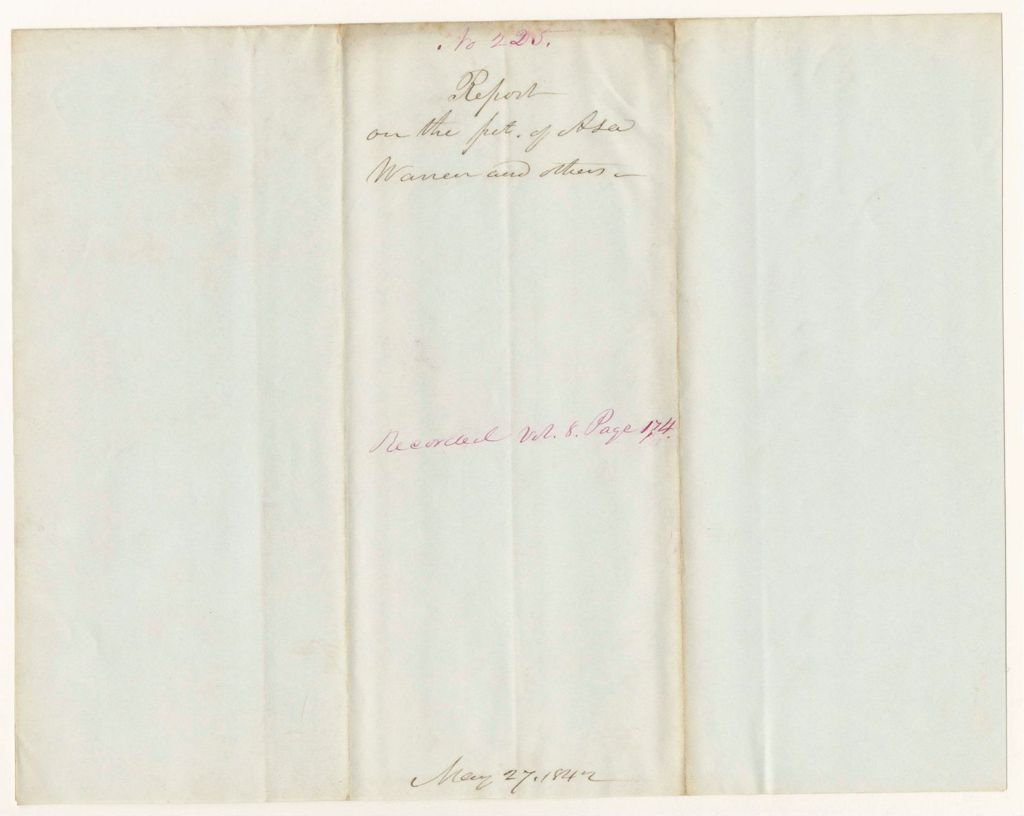 No 225.
Report
on the pet. of Asa
Warren and others -
Recorded Vol. 8. Page 174.
May 27. 1842